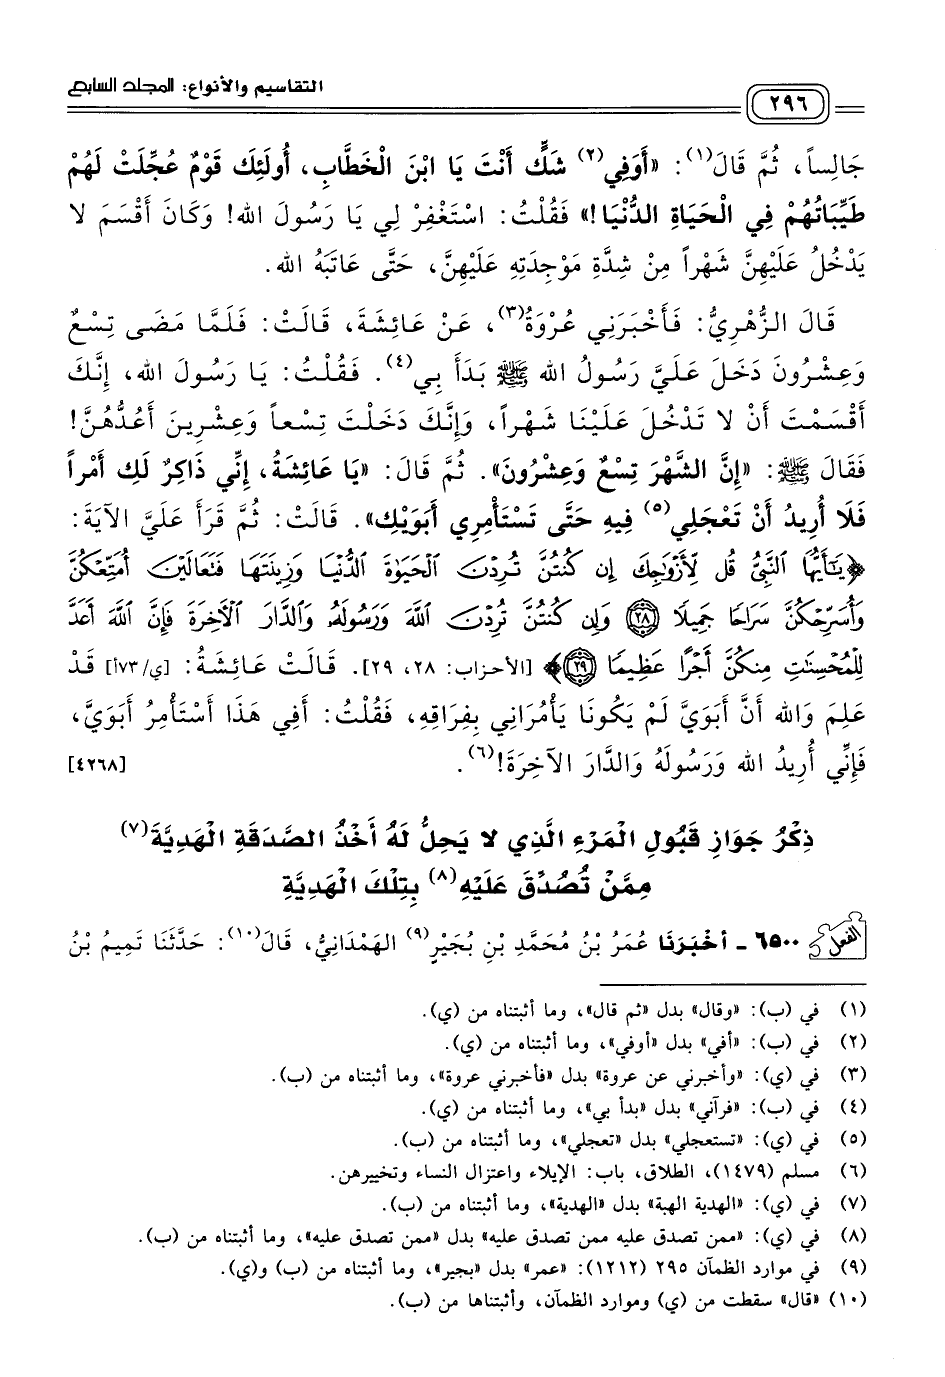 التقاسيم والأنواع: المجلد السابع
٢٩٦
جَالِساً، ثُمَّ قَالَ(١): «أَوَفِي(٢) شَكٍّ أَنْتَ يَا ابْنَ الْخَطَّابِ، أُولَئِكَ قَوْمٌ عُجِّلَتْ لَهُمْ
طَيِّبَاتُهُمْ فِي الْحَيَاةِ الدُّنْيَا!» فَقُلْتُ: اسْتَغْفِرْ لِي يَا رَسُولَ الله! وَكَانَ أَقْسَمَ لا
يَدْخُلُ عَلَيْهِنَّ شَهْراً مِنْ شِدَّةِ مَوْجِدَتِهِ عَلَيْهِنَّ، حَتَّى عَاتَبَهُ الله.
قَالَ الزُّهْرِيُّ: فَأَخْبَرَنِي عُرْوَةُ(٣)، عَنْ عَائِشَةَ، قَالَتْ: فَلَمَّا مَضَى تِسْعٌ
وَعِشْرُونَ دَخَلَ عَلَيَّ رَسُولُ الله ﷺ بَدَأَ بِي(٤). فَقُلْتُ: يَا رَسُولَ الله، إِنَّكَ
أَقْسَمْتَ أَنْ لا تَدْخُلَ عَلَيْنَا شَهْراً، وَإِنَّكَ دَخَلْتَ تِسْعاً وَعِشْرِينَ أَعُدُّهُنَّ!
فَقَالَ ﷺ: «إِنَّ الشَّهْرَ تِسْعٌ وَعِشْرُونَ». ثُمَّ قَالَ: «يَا عَائِشَةُ، إِنِّي ذَاكِرٌ لَكِ أَمْراً
فَلَا أُرِيدُ أَنْ تَعْجَلِي(٥) فِيهِ حَتَّى تَسْتَأْمِرِي أَبَوَيْكِ». قَالَتْ: ثُمَّ قَرَأَ عَلَيَّ الآيَةَ:
﴿يَٰٓأَيُّهَا ٱلنَّبِيُّ قُل لِّأَزْوَٰجِكَ إِن كُنتُنَّ تُرِدْنَ ٱلْحَيَوٰةَ ٱلدُّنْيَا وَزِينَتَهَا فَتَعَالَيْنَ أُمَتِّعْكُنَّ
وَأُسَرِّحْكُنَّ سَرَاحًا جَمِيلًا ٢٨ وَإِن كُنتُنَّ تُرِدْنَ ٱللَّهَ وَرَسُولَهُۥ وَٱلدَّارَ ٱلْأَخِرَةَ فَإِنَّ ٱللَّهَ أَعَدَّ
لِلْمُحْسِنَٰتِ مِنكُنَّ أَجْرًا عَظِيمًا ٢٩﴾ [الأحزاب: ٢٨، ٢٩]. قَالَتْ عَائِشَةُ: [ي/٧٣أ] قَدْ
عَلِمَ وَالله أَنَّ أَبَوَيَّ لَمْ يَكُونَا يَأْمُرَانِي بِفِرَاقِهِ، فَقُلْتُ: أَفِي هَذَا أَسْتَأْمِرُ أَبَوَيَّ،
فَإِنِّي أُرِيدُ الله وَرَسُولَهُ وَالدَّارَ الآخِرَةَ!(٦). [٤٢٦٨]
ذِكْرُ جَوَازِ قَبُولِ الْمَرْءِ الَّذِي لا يَحِلُّ لَهُ أَخْذُ الصَّدَقَةِ الْهَدِيَّةَ(٧)
مِمَّنْ تُصُدِّقَ عَلَيْهِ(٨) بِتِلْكَ الْهَدِيَّةِ
الفعل ٦٥٠٠ - أخْبَرَنَا عُمَرُ بْنُ مُحَمَّدِ بْنِ بُجَيْرٍ(٩) الهَمْدَانِيُّ، قَالَ(١٠): حَدَّثَنَا تَمِيمُ بْنُ
(١) في (ب): «وقال» بدل «ثم قال»، وما أثبتناه من (ي).
(٢) في (ب): «أفي» بدل «أوفي»، وما أثبتناه من (ي).
(٣) في (ي): «وأخبرني عن عروة» بدل «فأخبرني عروة»، وما أثبتناه من (ب).
(٤) في (ب): «فرآني» بدل «بدأ بي»، وما أثبتناه من (ي).
(٥) في (ي): «تستعجلي» بدل «تعجلي»، وما أثبتناه من (ب).
(٦) مسلم (١٤٧٩)، الطلاق، باب: الإيلاء واعتزال النساء وتخييرهن.
(٧) في (ي): «الهدية الهبة» بدل «الهدية»، وما أثبتناه من (ب).
(٨) في (ي): «ممن تصدق عليه ممن تصدق عليه» بدل «ممن تصدق عليه»، وما أثبتناه من (ب).
(٩) في موارد الظمآن ٢٩٥ (١٢١٢): «عمر» بدل «بجير»، وما أثبتناه من (ب) و(ي).
(١٠) «قال» سقطت من (ي) وموارد الظمآن، وأثبتناها من (ب).